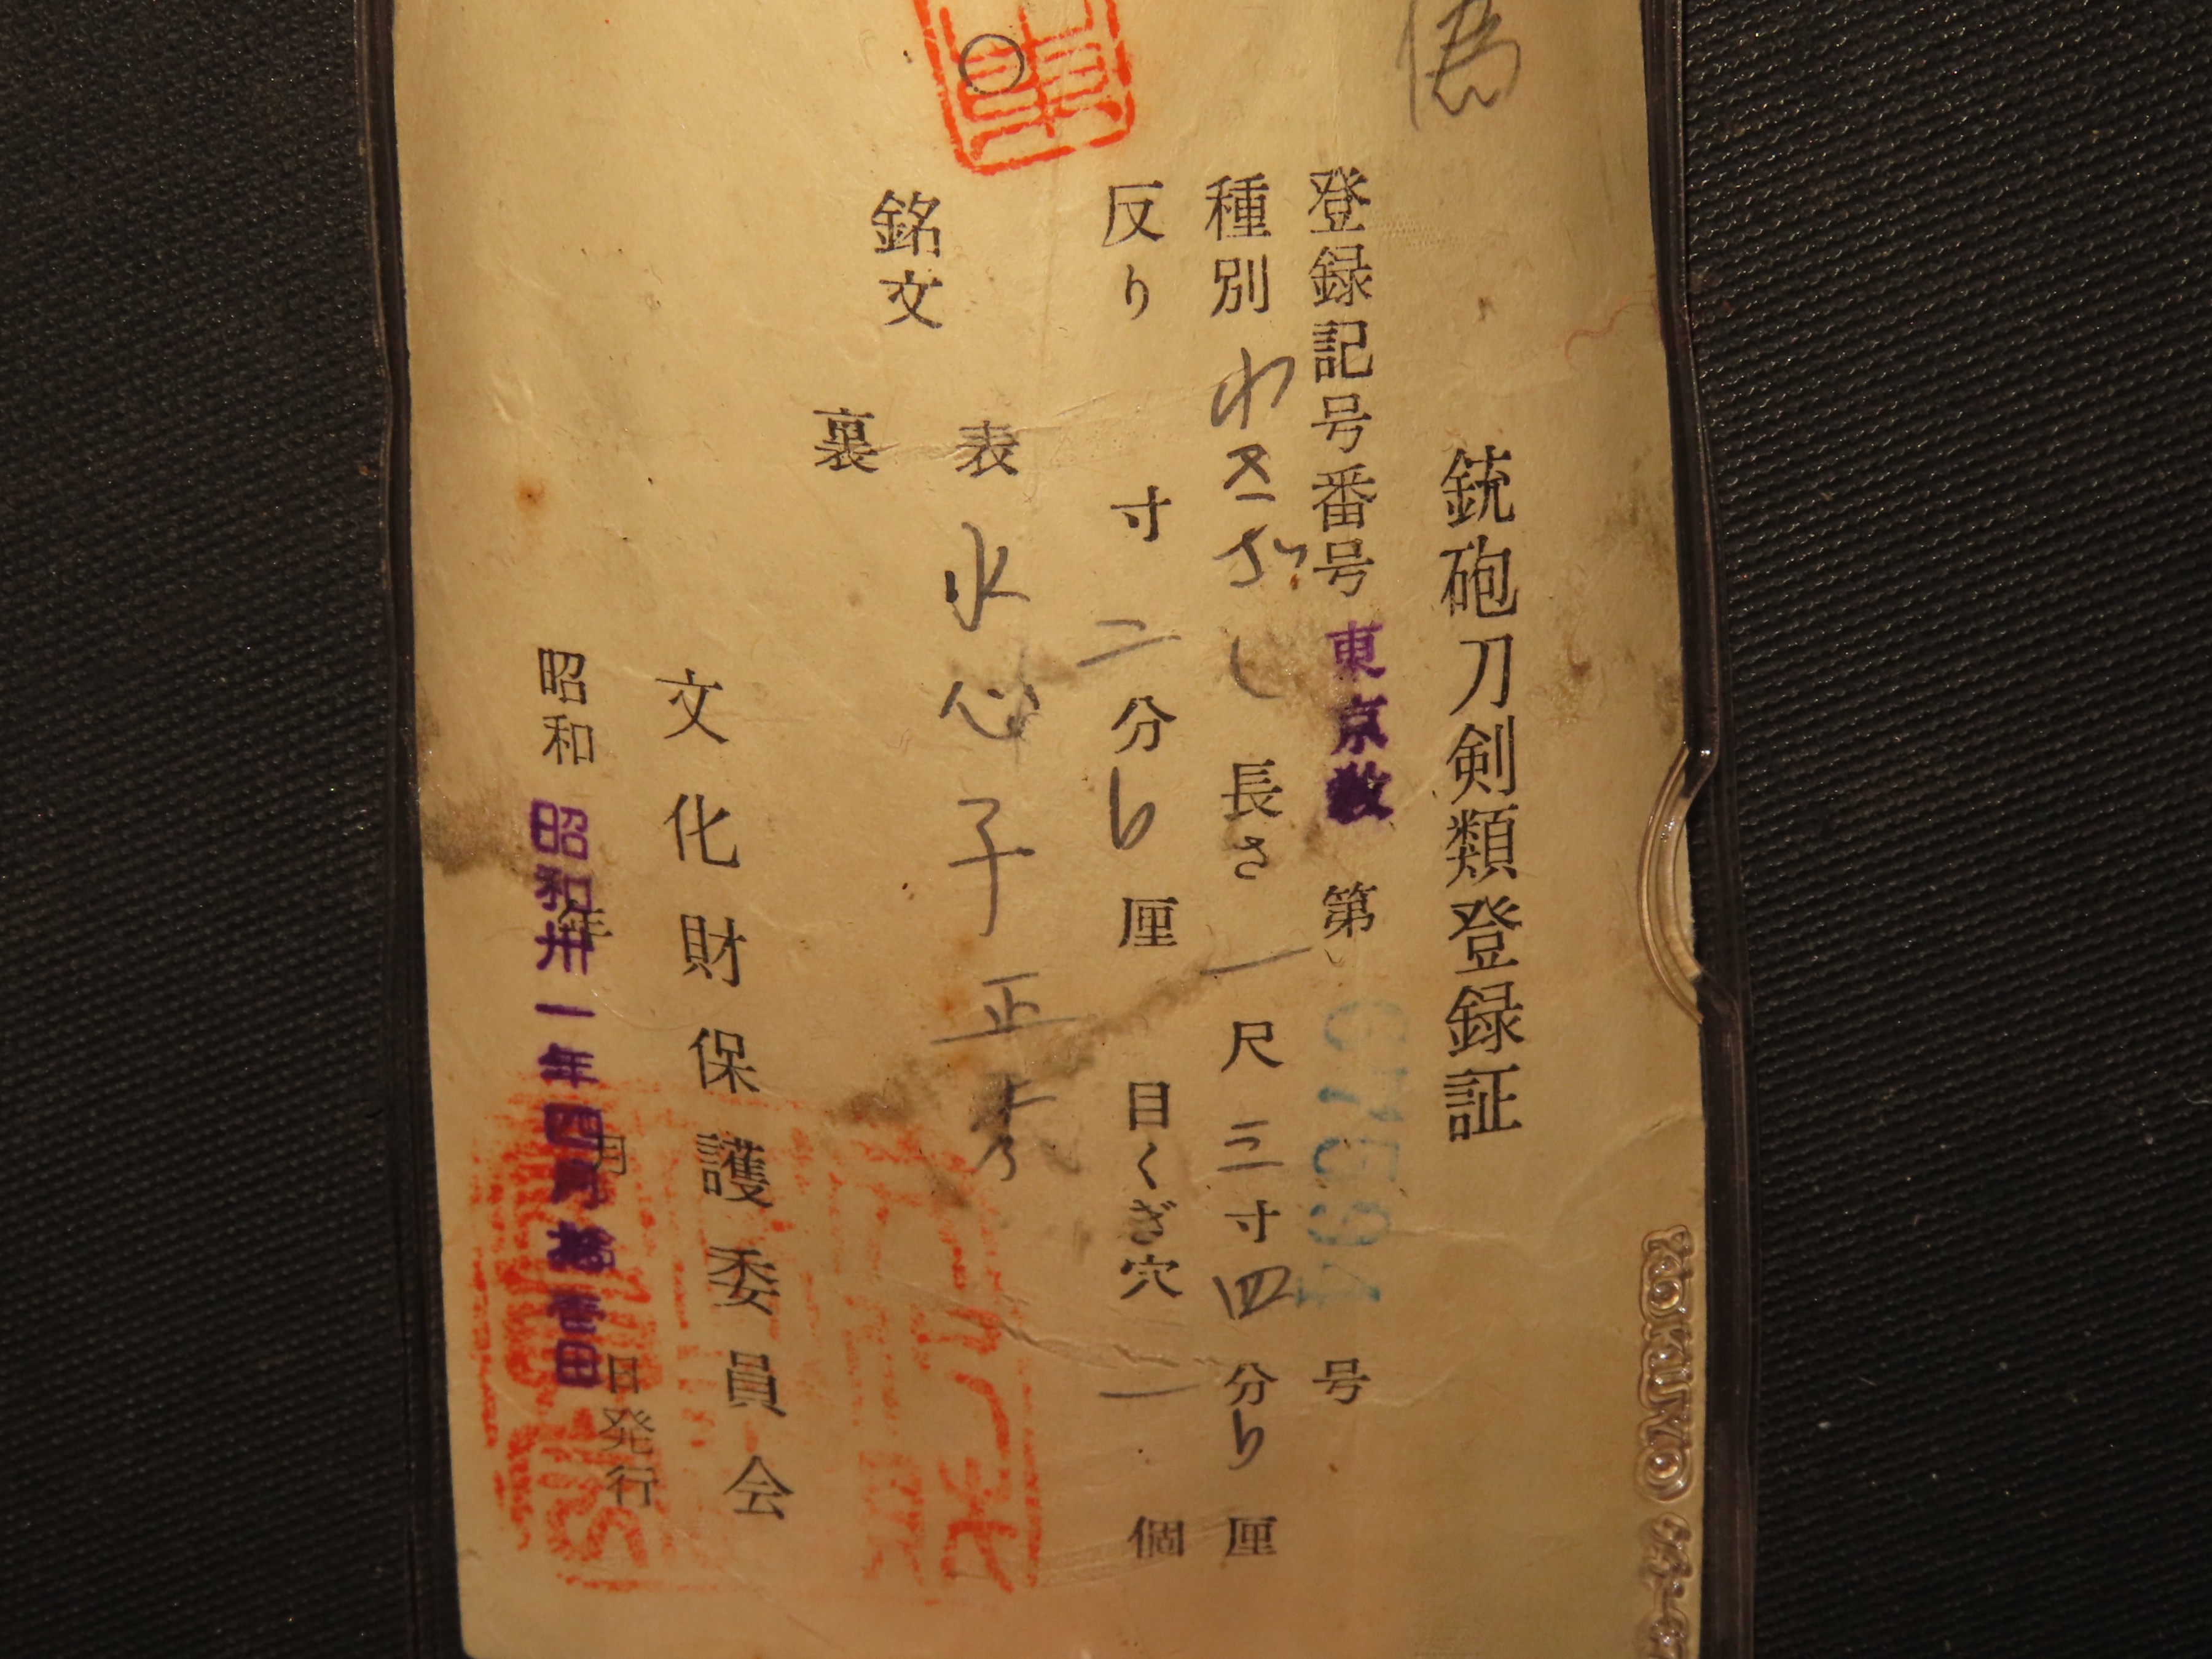 偽
銃砲刀剣類登録証
登録記号番号 東京教 第 67594 号
種別 わきざし 長さ 一尺三寸四分 厘
反り 寸二分 厘 目くぎ穴 一 個
銘文
表 水心子正秀
裏
文化財保護委員会
昭和 年 月 日発行
昭和卅一年四月拾壹日
KOKUYO